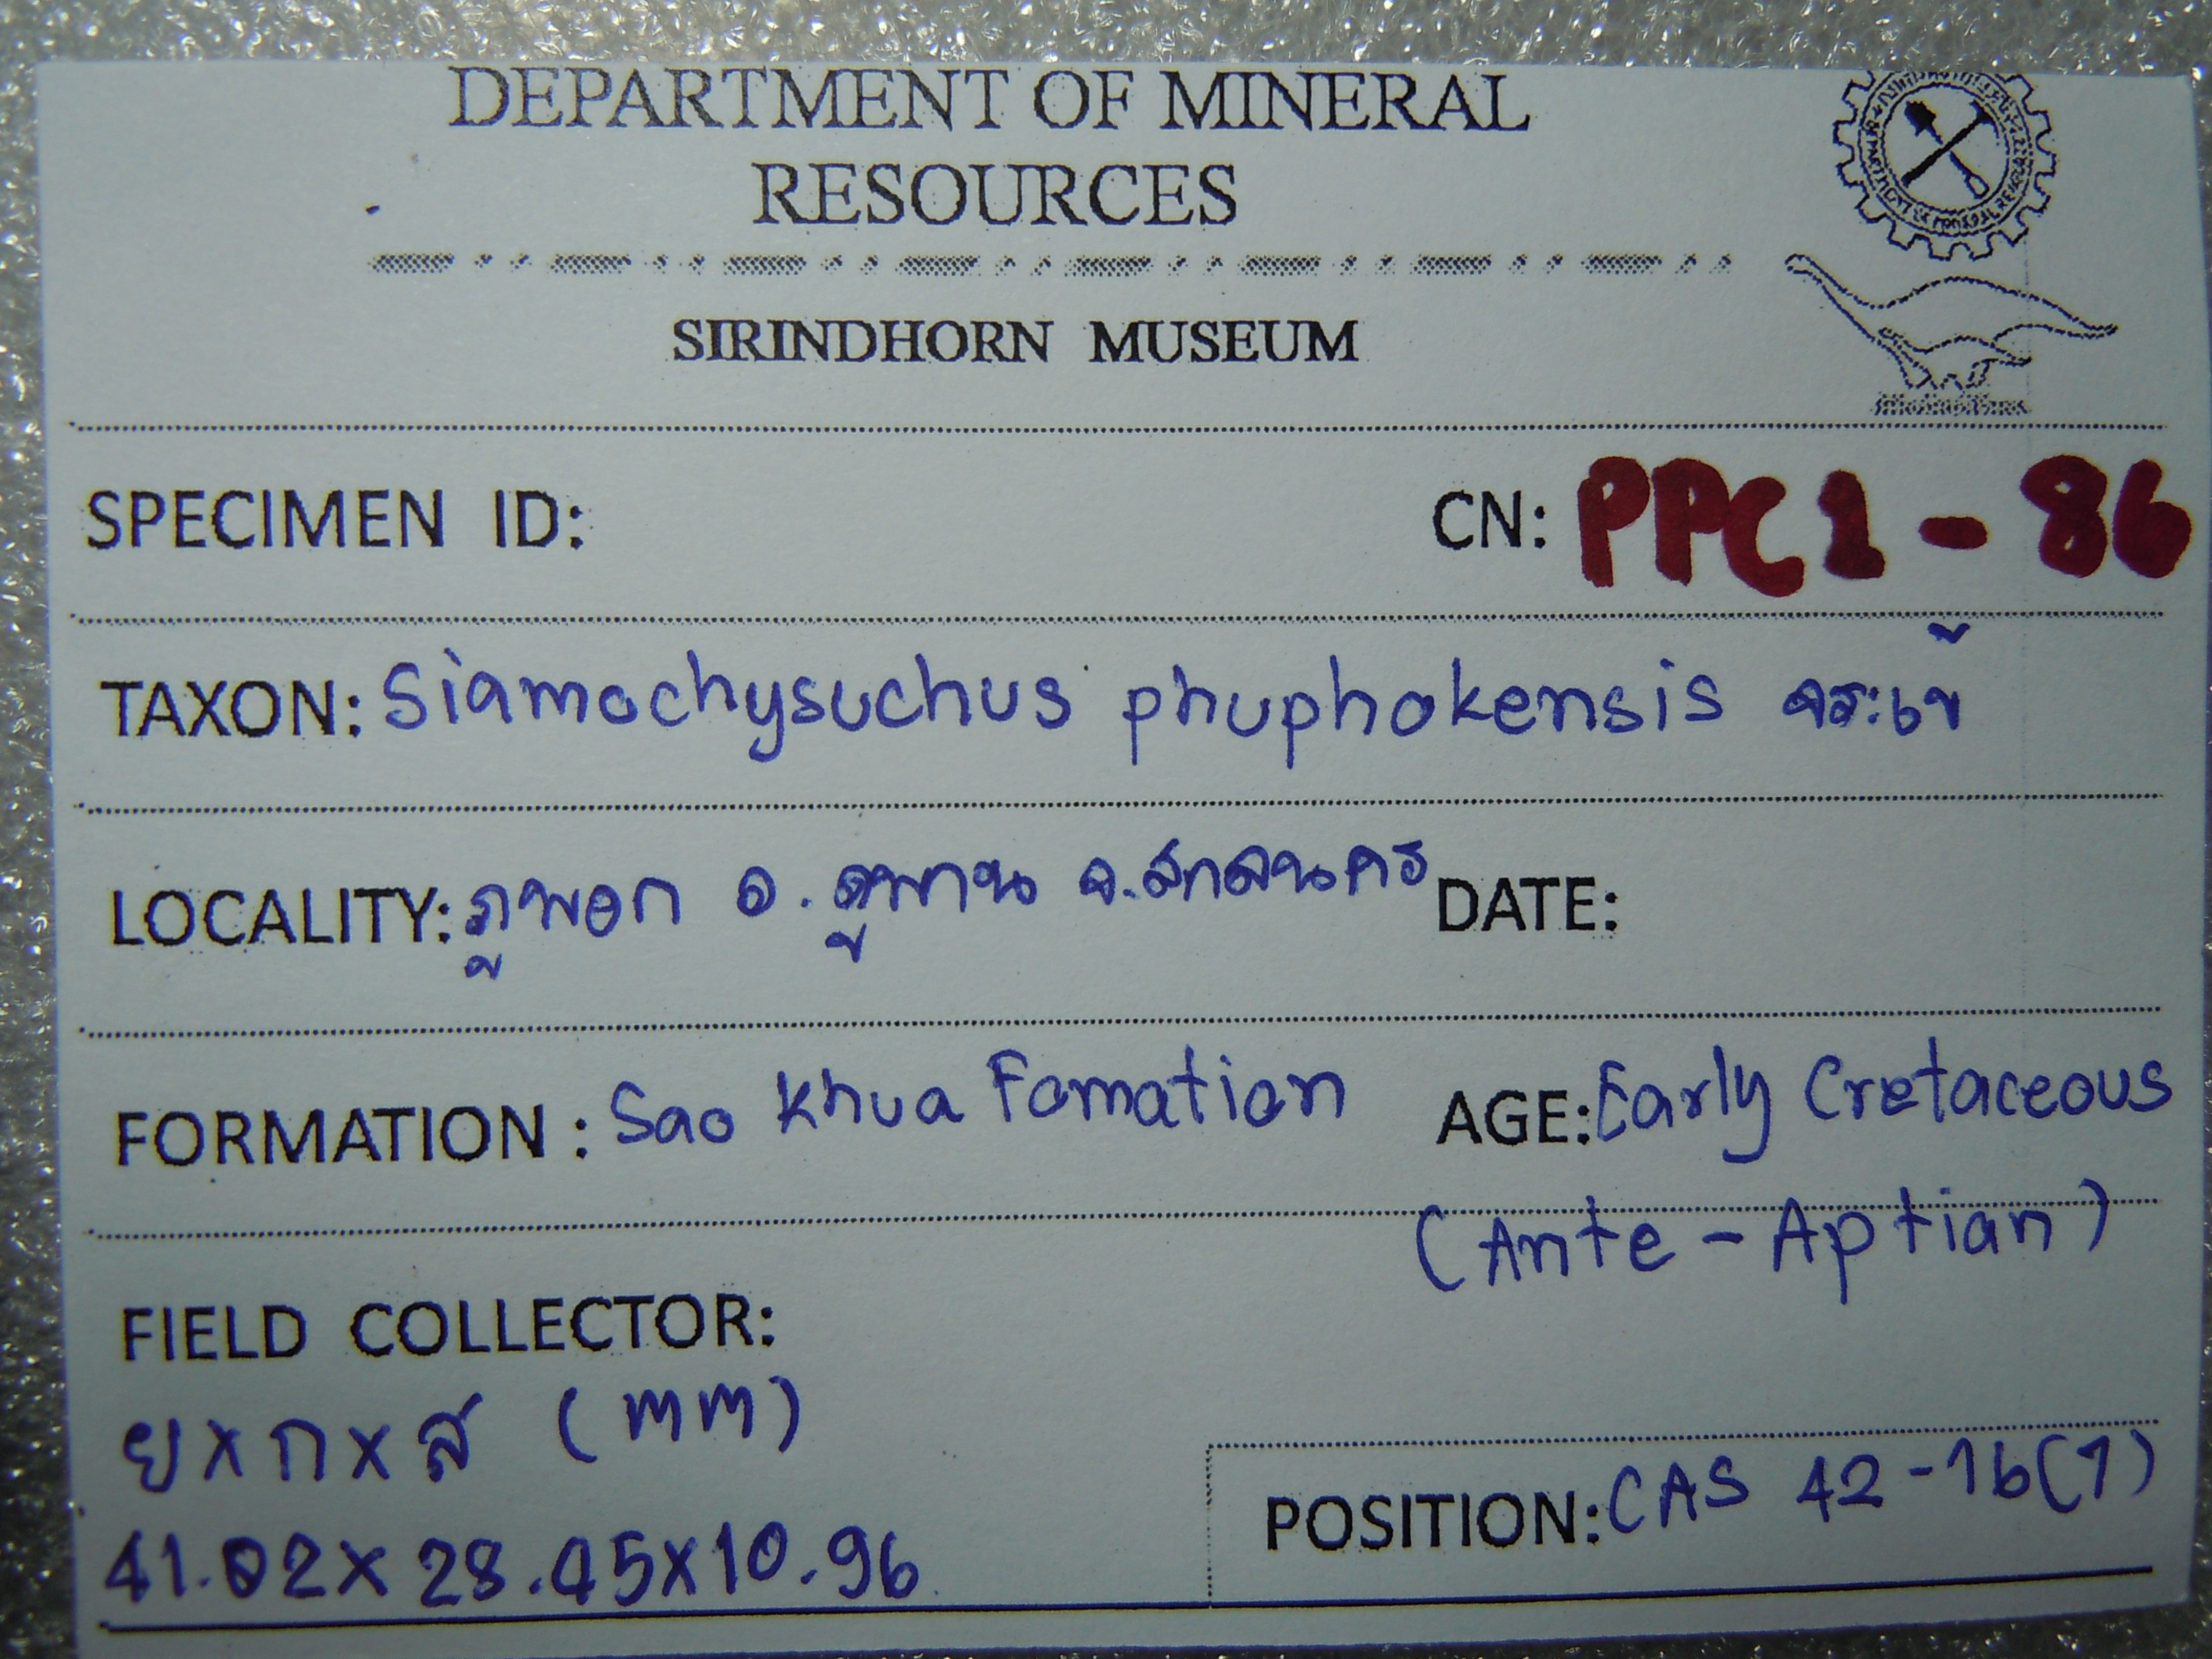 DEPARTMENT OF MINERAL
RESOURCES
SIRINDHORN MUSEUM
SPECIMEN ID: CN: PPC1-86
TAXON: Siamochysuchus phuphokensis จระเข้
LOCALITY: ภูพอก อ.ภูพาน จ.สกลนคร DATE:
FORMATION : Sao Khua Fomation AGE: Early Cretaceous
(Ante-Aptian)
FIELD COLLECTOR:
ยxกxส (mm)
41.02x28.45x10.96
POSITION: CAS 42-16(1)